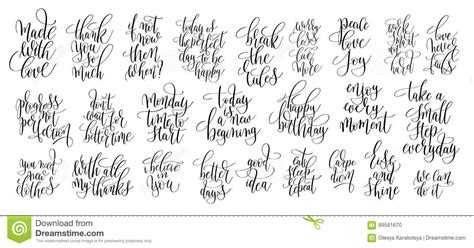 made
with
love
thank
you
so
much
if not
now
then
when?
today is
the perfect
day to be
happy
break
the
rules
worry
less
more
peace
love
joy
love
never
fails
progress
not
perfection
don't
wait for
better time
Monday
time to
start
today
is
a new
happy
birthday
enjoy
every
moment
take a
small
step
everyday
you need
new
clothes
With all
my
thanks
believe
in
you
better
days
good
idea
eat
sleep
repeat
Carpe
diem
rise
and
shine
we can
do it
Download from
Dreamstime.com
This watermarked comp image is for previewing purposes only.
89581670
Olesya Karakotsya | Dreamstime.com